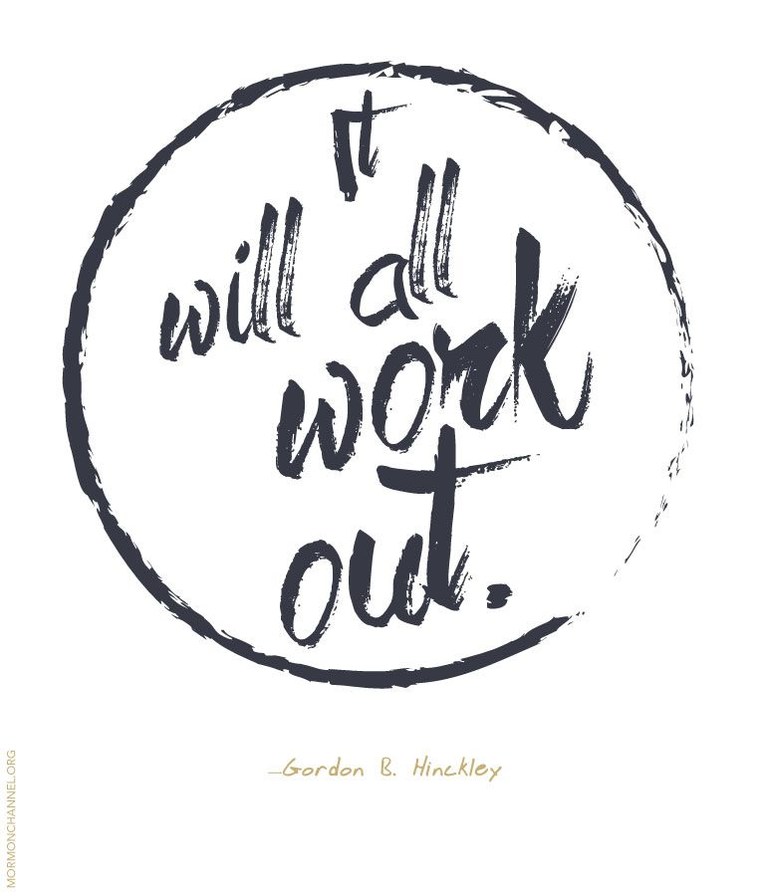 It
will all
work
out.
—Gordon B. Hinckley
MORMONCHANNEL.ORG